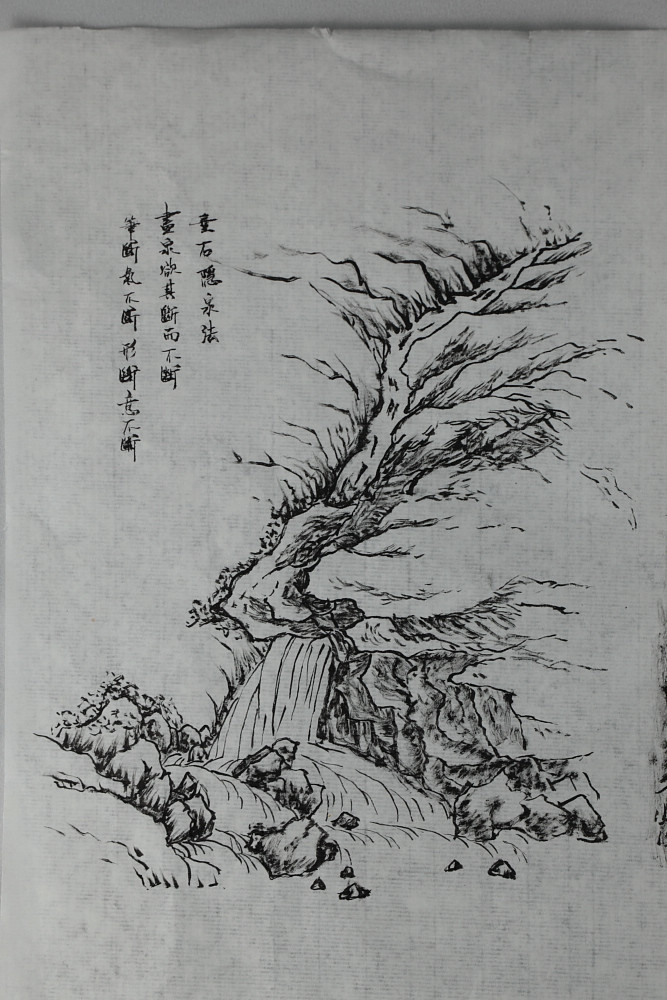 垂石隱泉法
畫泉欲其斷而不斷
筆斷氣不斷形斷意不斷